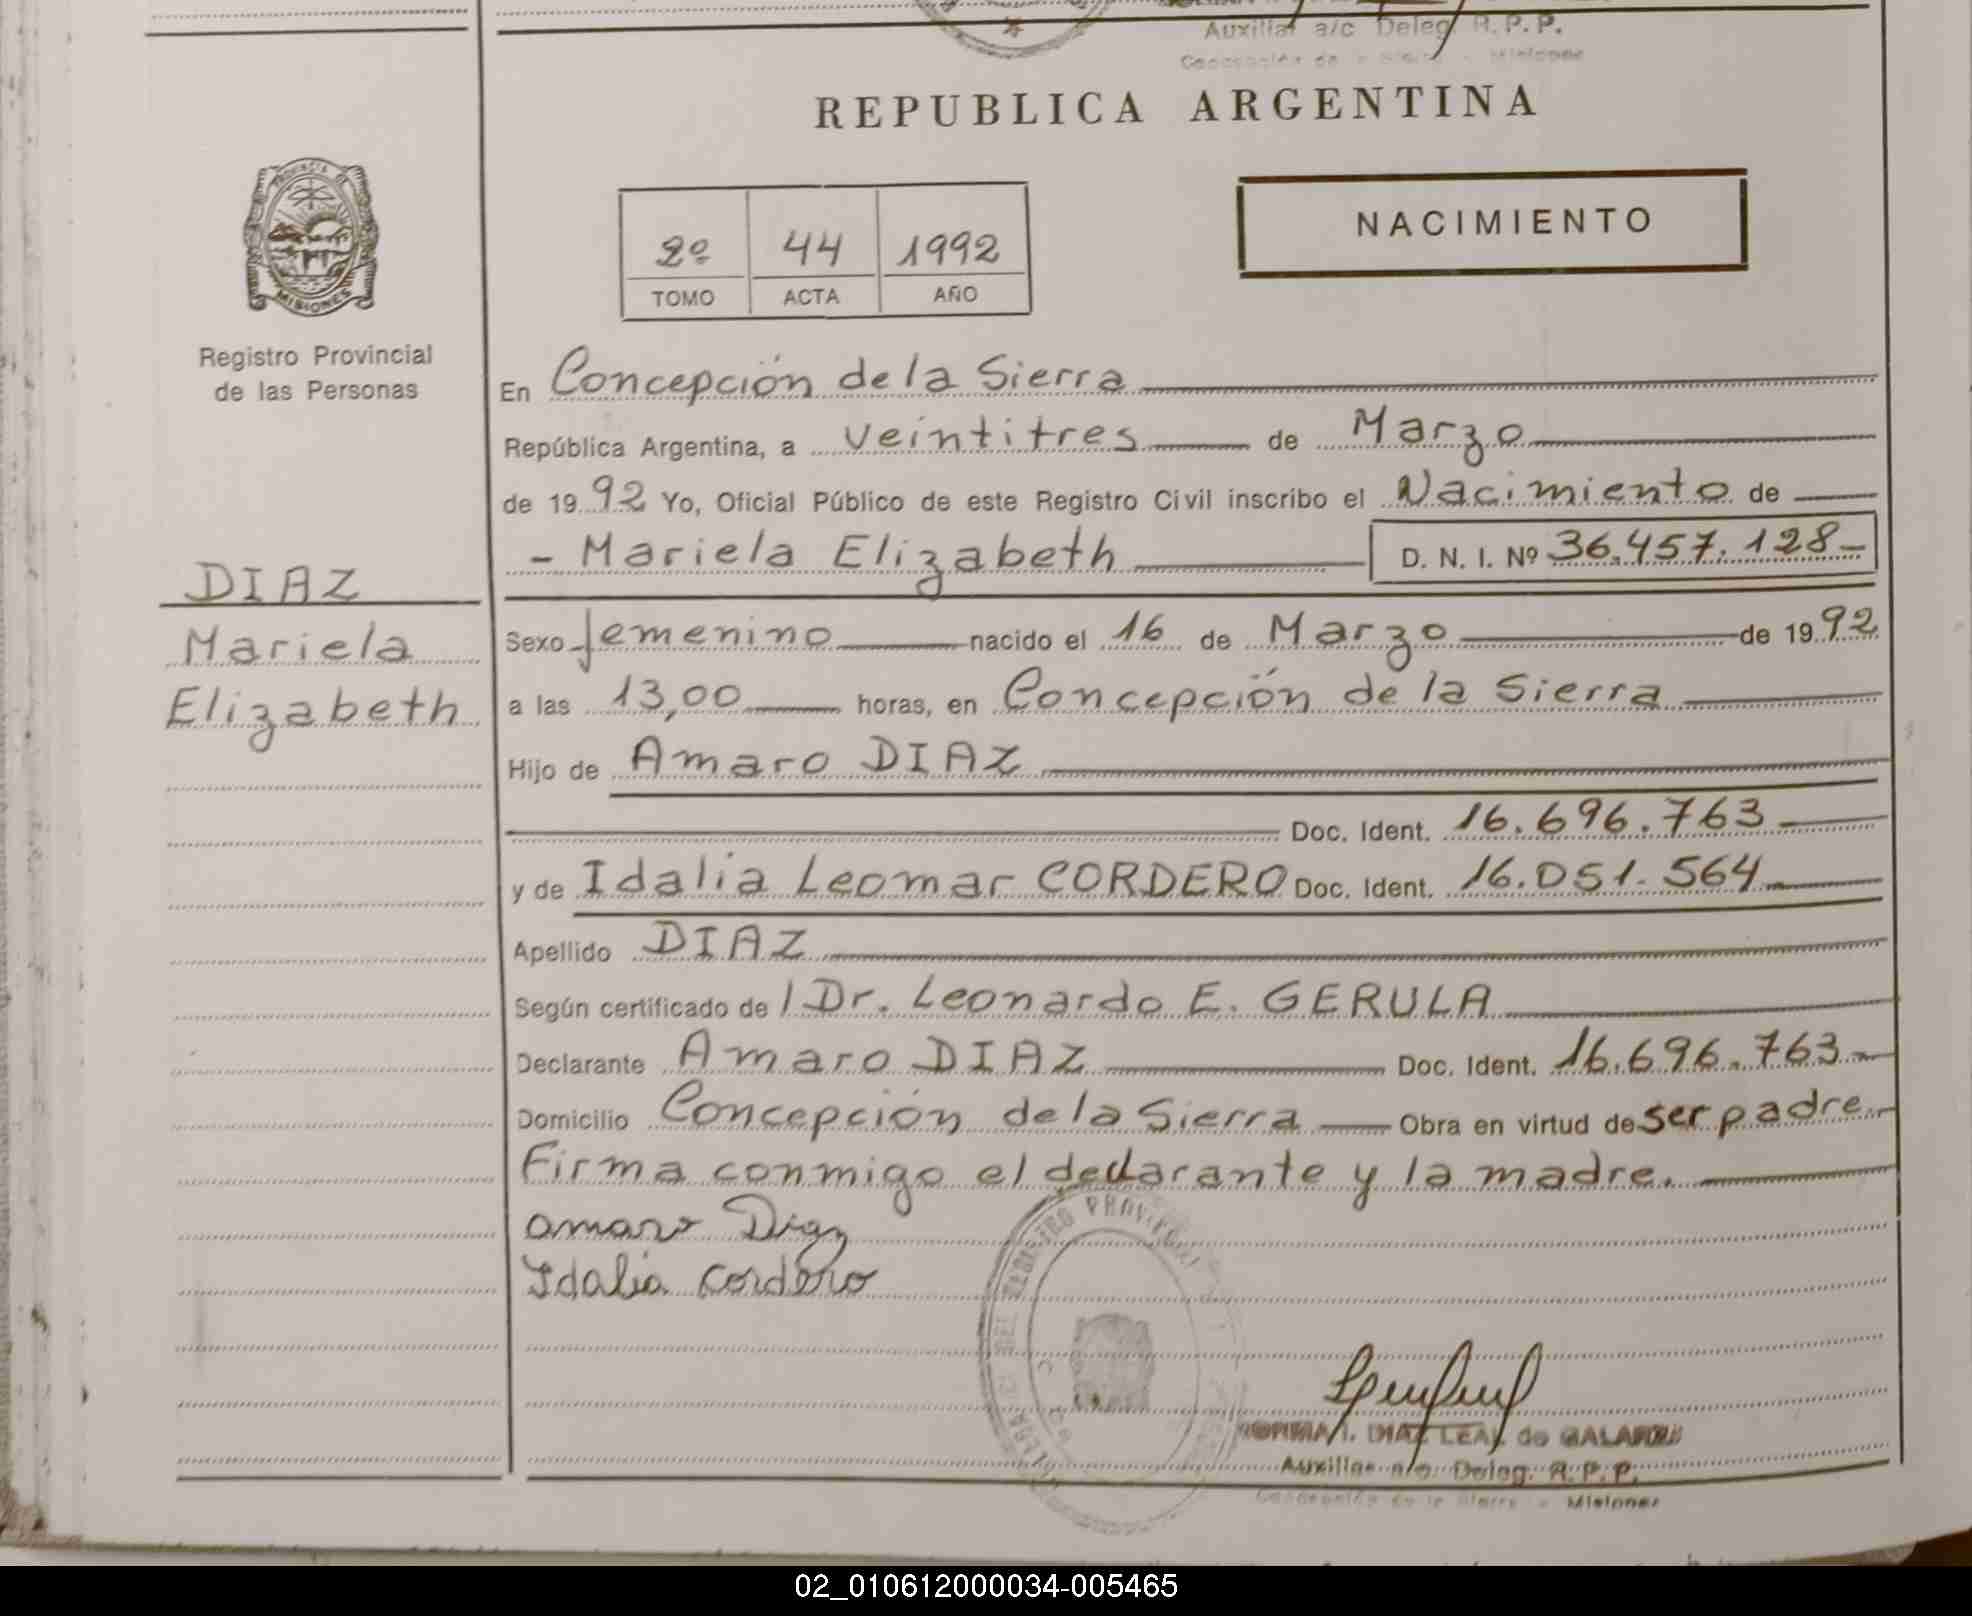 Auxiliar a/c Deleg. R. P. P.
Concepción de la Sierra - Misiones
REPUBLICA ARGENTINA
PROVINCIA DE
MISIONES
2º 44 1992
TOMO ACTA AÑO
NACIMIENTO
Registro Provincial
de las Personas
En Concepción de la Sierra
República Argentina, a veintitres de Marzo
de 1992 Yo, Oficial Público de este Registro Civil inscribo el Nacimiento de
- Mariela Elizabeth D. N. I. Nº 36.457.128-
DIAZ
Mariela
Elizabeth
Sexo femenino nacido el 16 de Marzo de 1992
a las 13,00 horas, en Concepción de la Sierra
Hijo de Amaro DIAZ
Doc. Ident. 16.696.763
y de Idalia Leomar CORDERO Doc. Ident. 16.051.564
Apellido DIAZ
Según certificado de / Dr. Leonardo E. GERULA
Declarante Amaro DIAZ Doc. Ident. 16.696.763
Domicilio Concepción de la Sierra Obra en virtud de ser padre.
Firma conmigo el declarante y la madre.
Amaro Diaz
Idalia Cordero
REGISTRO PROVINCIAL
NORMA I. DIAZ LEAL de GALARZA
Auxiliar a/c. Deleg. R. P. P.
Concepción de la Sierra - Misiones
02_010612000034-005465